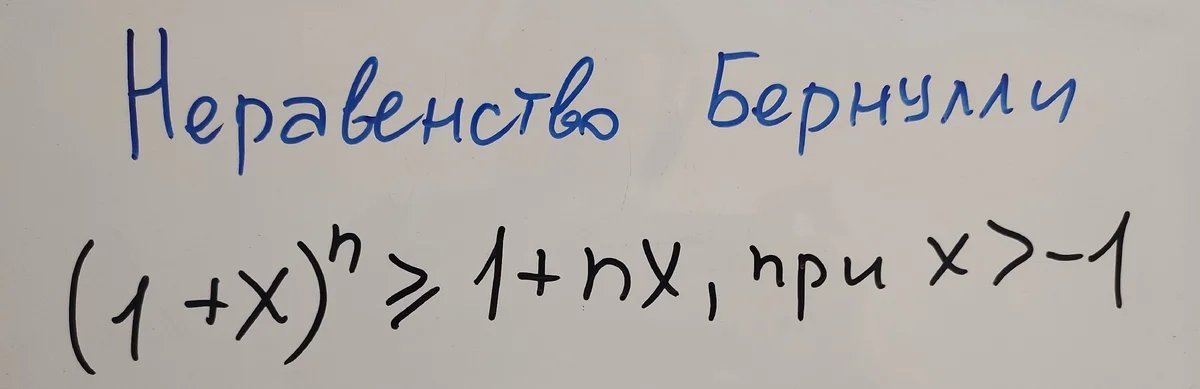 Неравенство Бернулли
(1+x)ⁿ ⩾ 1+nx, при x>-1